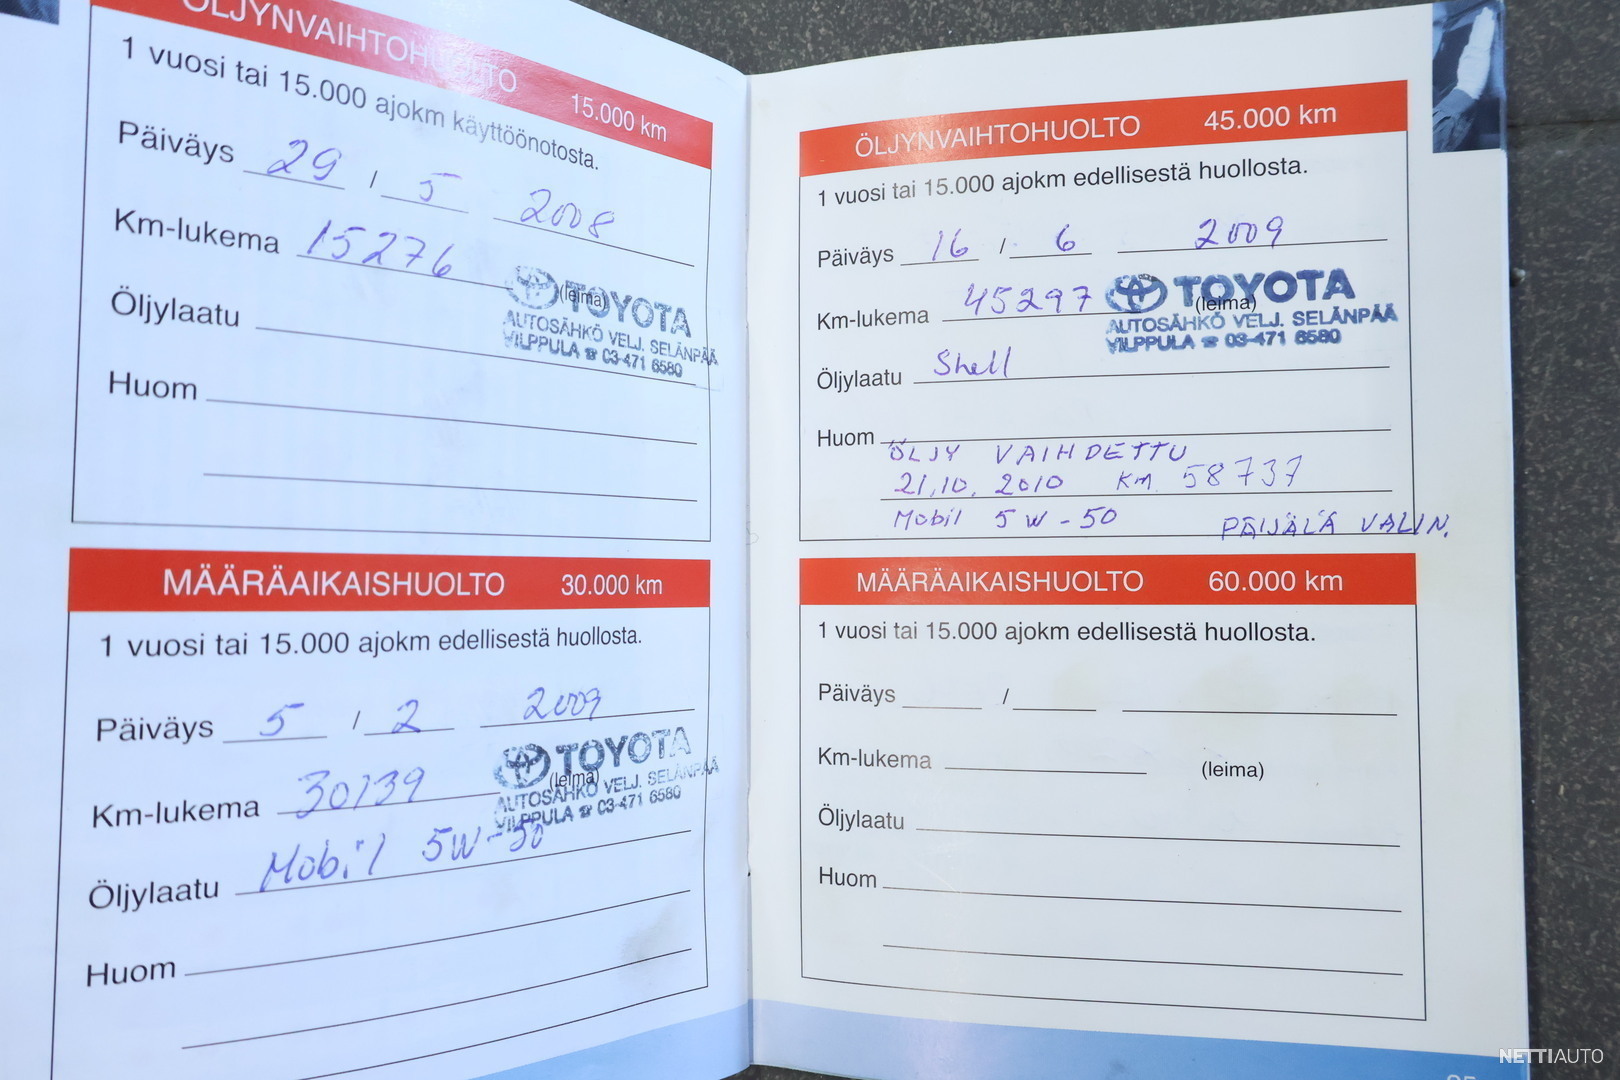 ÖLJYNVAIHTOHUOLTO 15.000 km
1 vuosi tai 15.000 ajokm käyttöönotosta.
Päiväys 29 / 5 2008
Km-lukema 15276
(leima)
TOYOTA
AUTOSÄHKÖ VELJ. SELÄNPÄÄ
VILPPULA ☎ 03-471 6580
Öljylaatu
Huom
MÄÄRÄAIKAISHUOLTO 30.000 km
1 vuosi tai 15.000 ajokm edellisestä huollosta.
Päiväys 5 / 2 2009
Km-lukema 30139
(leima)
TOYOTA
AUTOSÄHKÖ VELJ. SELÄNPÄÄ
VILPPULA ☎ 03-471 6580
Öljylaatu Mobil 5W-50
Huom
ÖLJYNVAIHTOHUOLTO 45.000 km
1 vuosi tai 15.000 ajokm edellisestä huollosta.
Päiväys 16 / 6 2009
Km-lukema 45297
(leima)
TOYOTA
AUTOSÄHKÖ VELJ. SELÄNPÄÄ
VILPPULA ☎ 03-471 6580
Öljylaatu Shell
Huom
ÖLJY VAIHDETTU
21.10. 2010 KM. 58737
Mobil 5W-50 PÄIJÄLÄ VALIN.
MÄÄRÄAIKAISHUOLTO 60.000 km
1 vuosi tai 15.000 ajokm edellisestä huollosta.
Päiväys /
Km-lukema (leima)
Öljylaatu
Huom
NETTIAUTO